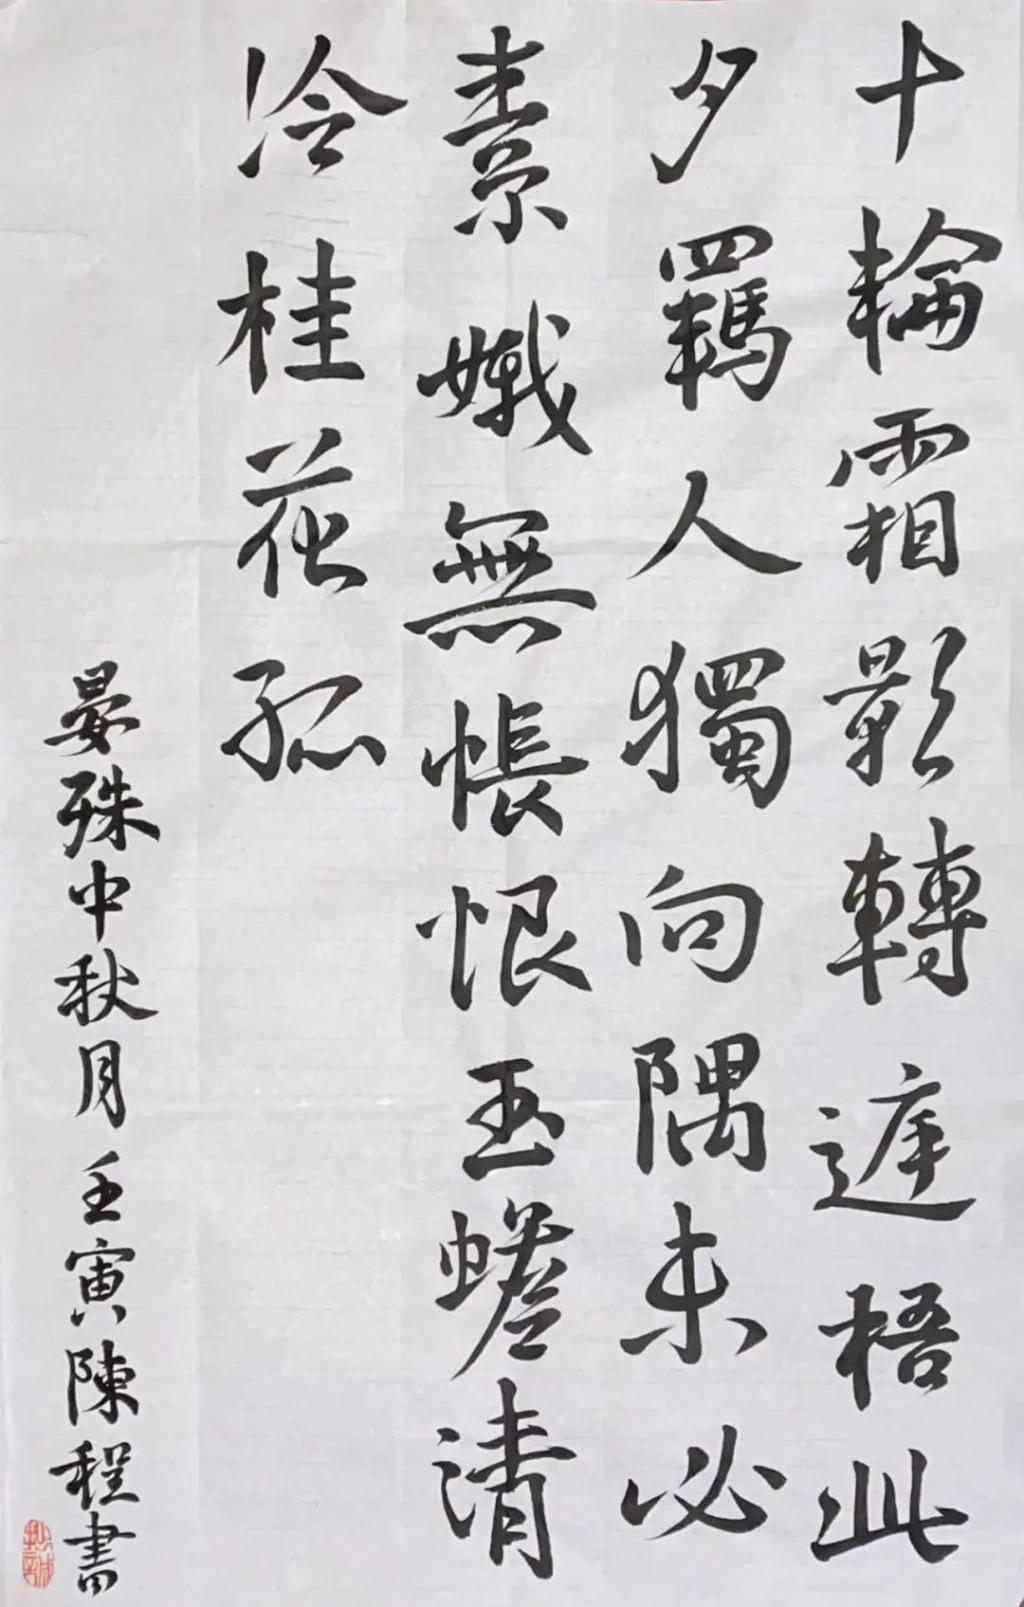 十輪霜影轉遅梧此
夕羈人獨向隅未必
素娥無悵恨玉蟾清
冷桂花孤
晏殊中秋月壬寅陳程書